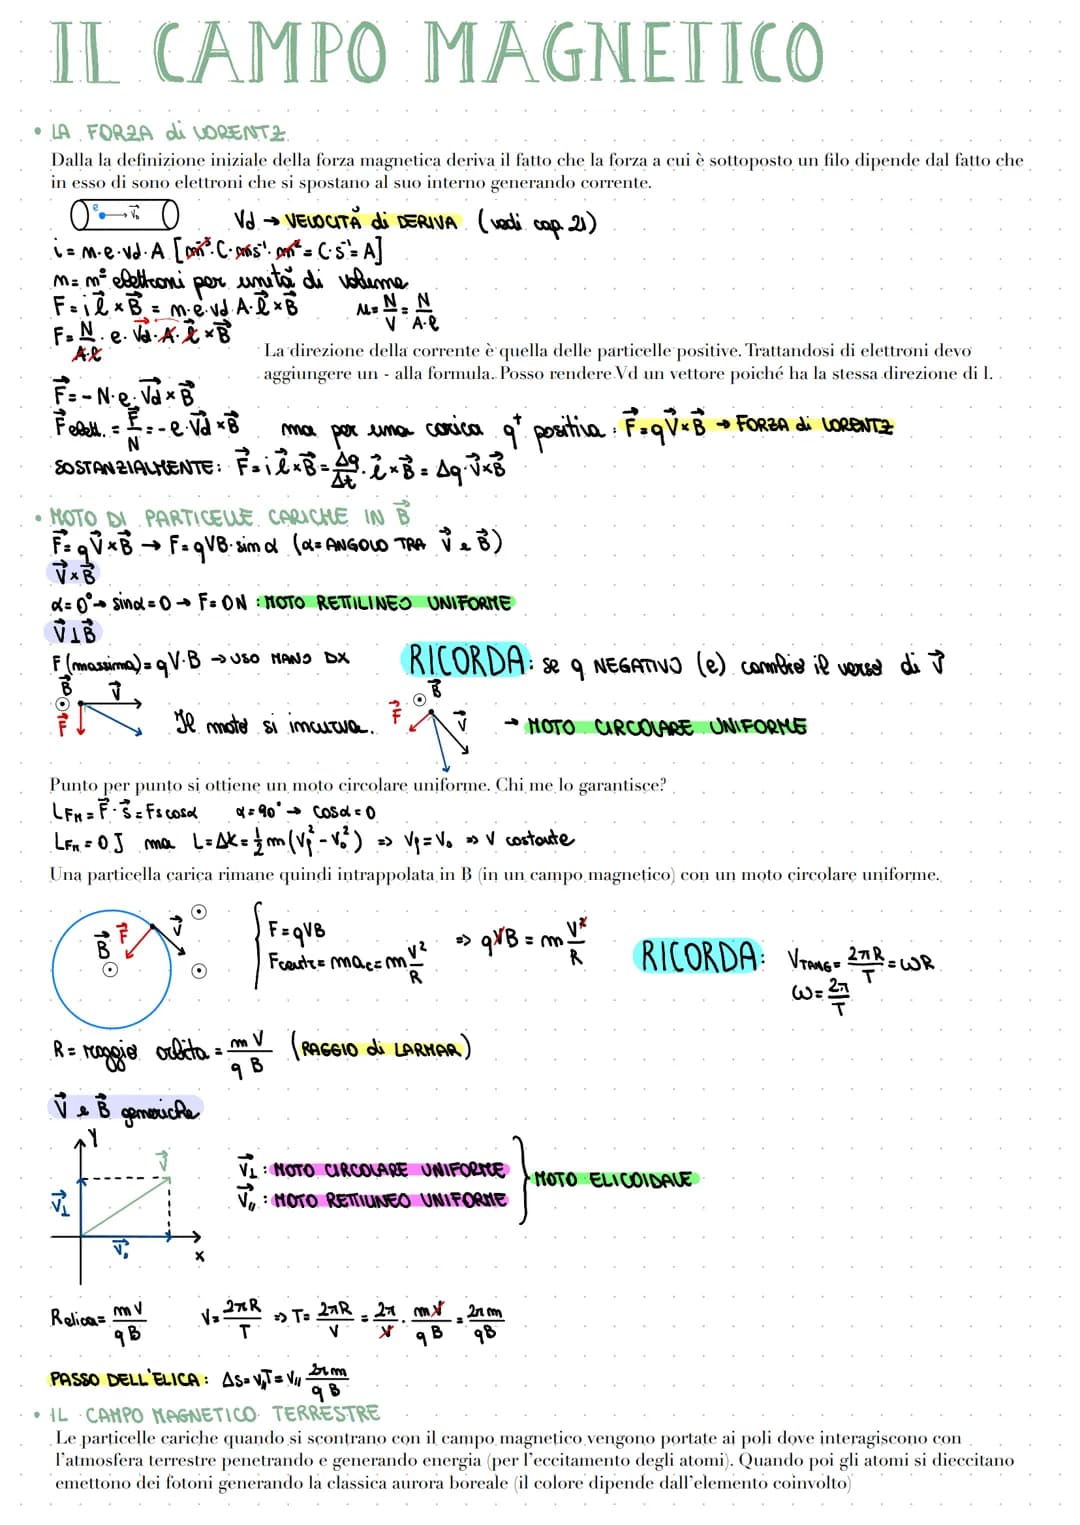 IL CAMPO MAGNETICO
• LA FORZA di LORENTZ
Dalla la definizione iniziale della forza magnetica deriva il fatto che la forza a cui è sottoposto un filo dipende dal fatto che
in esso di sono elettroni che si spostano al suo interno generando corrente.
e⁻ → V⃗₀ Vd → VELOCITÀ di DERIVA (vedi cap. 21)
i = n·e·vd·A [m⁻³·C·ms⁻¹·m² = C·s⁻¹ = A]
n = n° elettroni per unità di volume
F = i l⃗ × B⃗ = n·e·vd·A·l⃗ × B⃗ n = N/V = N/A·l
F = N/A·l · e · V⃗d · A · l⃗ × B⃗
La direzione della corrente è quella delle particelle positive. Trattandosi di elettroni devo
aggiungere un - alla formula. Posso rendere Vd un vettore poiché ha la stessa direzione di l.
F⃗ = - N·e·V⃗d × B⃗
F⃗elett. = F⃗/N = - e·V⃗d × B⃗ ma per una carica q⁺ positiva: F⃗ = qV⃗ × B⃗ → FORZA di LORENTZ
SOSTANZIALMENTE: F⃗ = i l⃗ × B⃗ = Δq/Δt · l⃗ × B⃗ = Δq·V⃗ × B⃗
• MOTO DI PARTICELLE CARICHE IN B⃗
F⃗ = qV⃗ × B⃗ → F = qVB·sin α (α = ANGOLO TRA V⃗ e B⃗)
V⃗ × B⃗
α = 0° → sin α = 0 → F = 0N : MOTO RETTILINEO UNIFORME
V⃗ ⊥ B⃗
F (massima) = qV·B → USO MANO DX RICORDA: se q NEGATIVO (e) cambio il verso di V⃗
B⃗ V⃗ F⃗ Il moto si incurva. F⃗ B⃗ V⃗ → MOTO CIRCOLARE UNIFORME
Punto per punto si ottiene un moto circolare uniforme. Chi me lo garantisce?
L_FM = F⃗·s⃗ = Fs cos α α = 90° → cos α = 0
L_FM = 0 J ma L = ΔK = ½ m (V_f² - V₀²) ⇒ V_f = V₀ ⇒ V costante
Una particella carica rimane quindi intrappolata in B (in un campo magnetico) con un moto circolare uniforme.
B⃗ F⃗ V⃗ { F = qVB
Fcentr = mac = m V²/R ⇒ qVB = m V²/R RICORDA: V_TANG = 2πR/T = ωR
ω = 2π/T
R = raggio orbita = mV/qB (RAGGIO di LARMAR)
V⃗ e B⃗ generiche
Y V⃗ V⃗⊥ V⃗ x
V⃗⊥ : MOTO CIRCOLARE UNIFORME
V⃗∥ : MOTO RETTILINEO UNIFORME } MOTO ELICOIDALE
Relica = mV/qB V = 2πR/T ⇒ T = 2πR/V = 2π/V · mV/qB = 2πm/qB
PASSO DELL'ELICA: Δs = V∥T = V∥ 2πm/qB
• IL CAMPO MAGNETICO TERRESTRE
Le particelle cariche quando si scontrano con il campo magnetico vengono portate ai poli dove interagiscono con
l'atmosfera terrestre penetrando e generando energia (per l'eccitamento degli atomi). Quando poi gli atomi si dieccitano
emettono dei fotoni generando la classica aurora boreale (il colore dipende dall'elemento coinvolto)